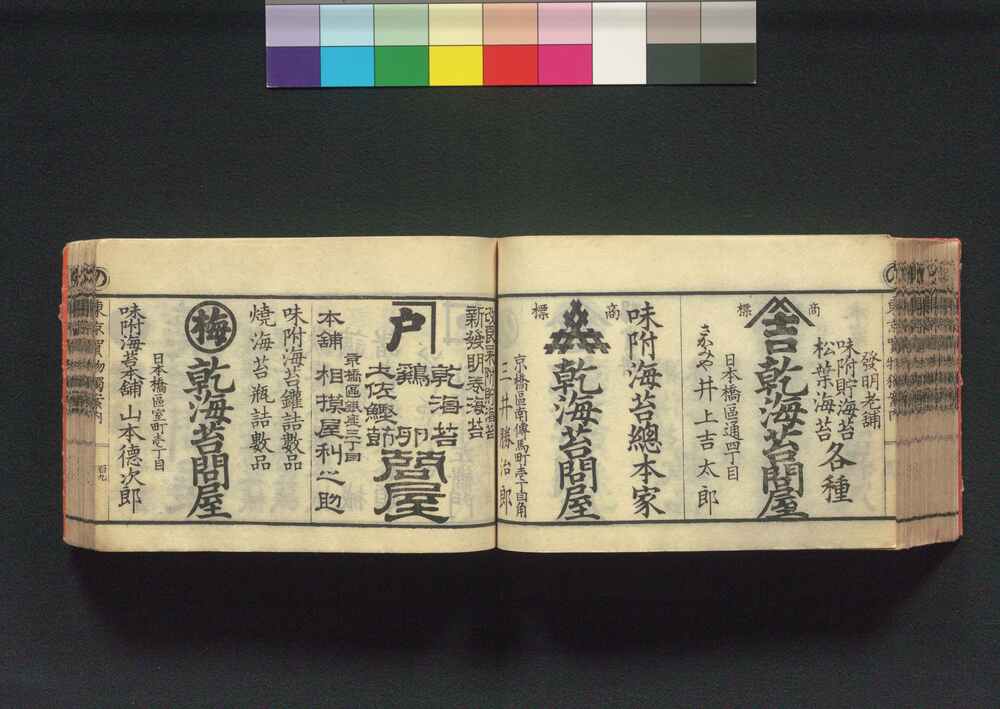 の
發明老舖
味附貯海苔
松葉海苔
各種
商標
吉
乾海苔問屋
日本橋區通四丁目
さかみや 井上吉太郎
味附海苔總本家
商標
乾海苔問屋
京橋區南傳馬町壱丁目角
三井勝治郎
新發明春海苔
戸
乾海苔
鷄卵
土佐鰹節
問屋
京橋區銀座三丁目
本舖 相摸屋利之助
味附海苔鑵詰數品
燒海苔瓶詰數品
梅
乾海苔問屋
日本橋區室町壱丁目
味附海苔本舖 山本德次郎
の
東京買物獨案内
百九